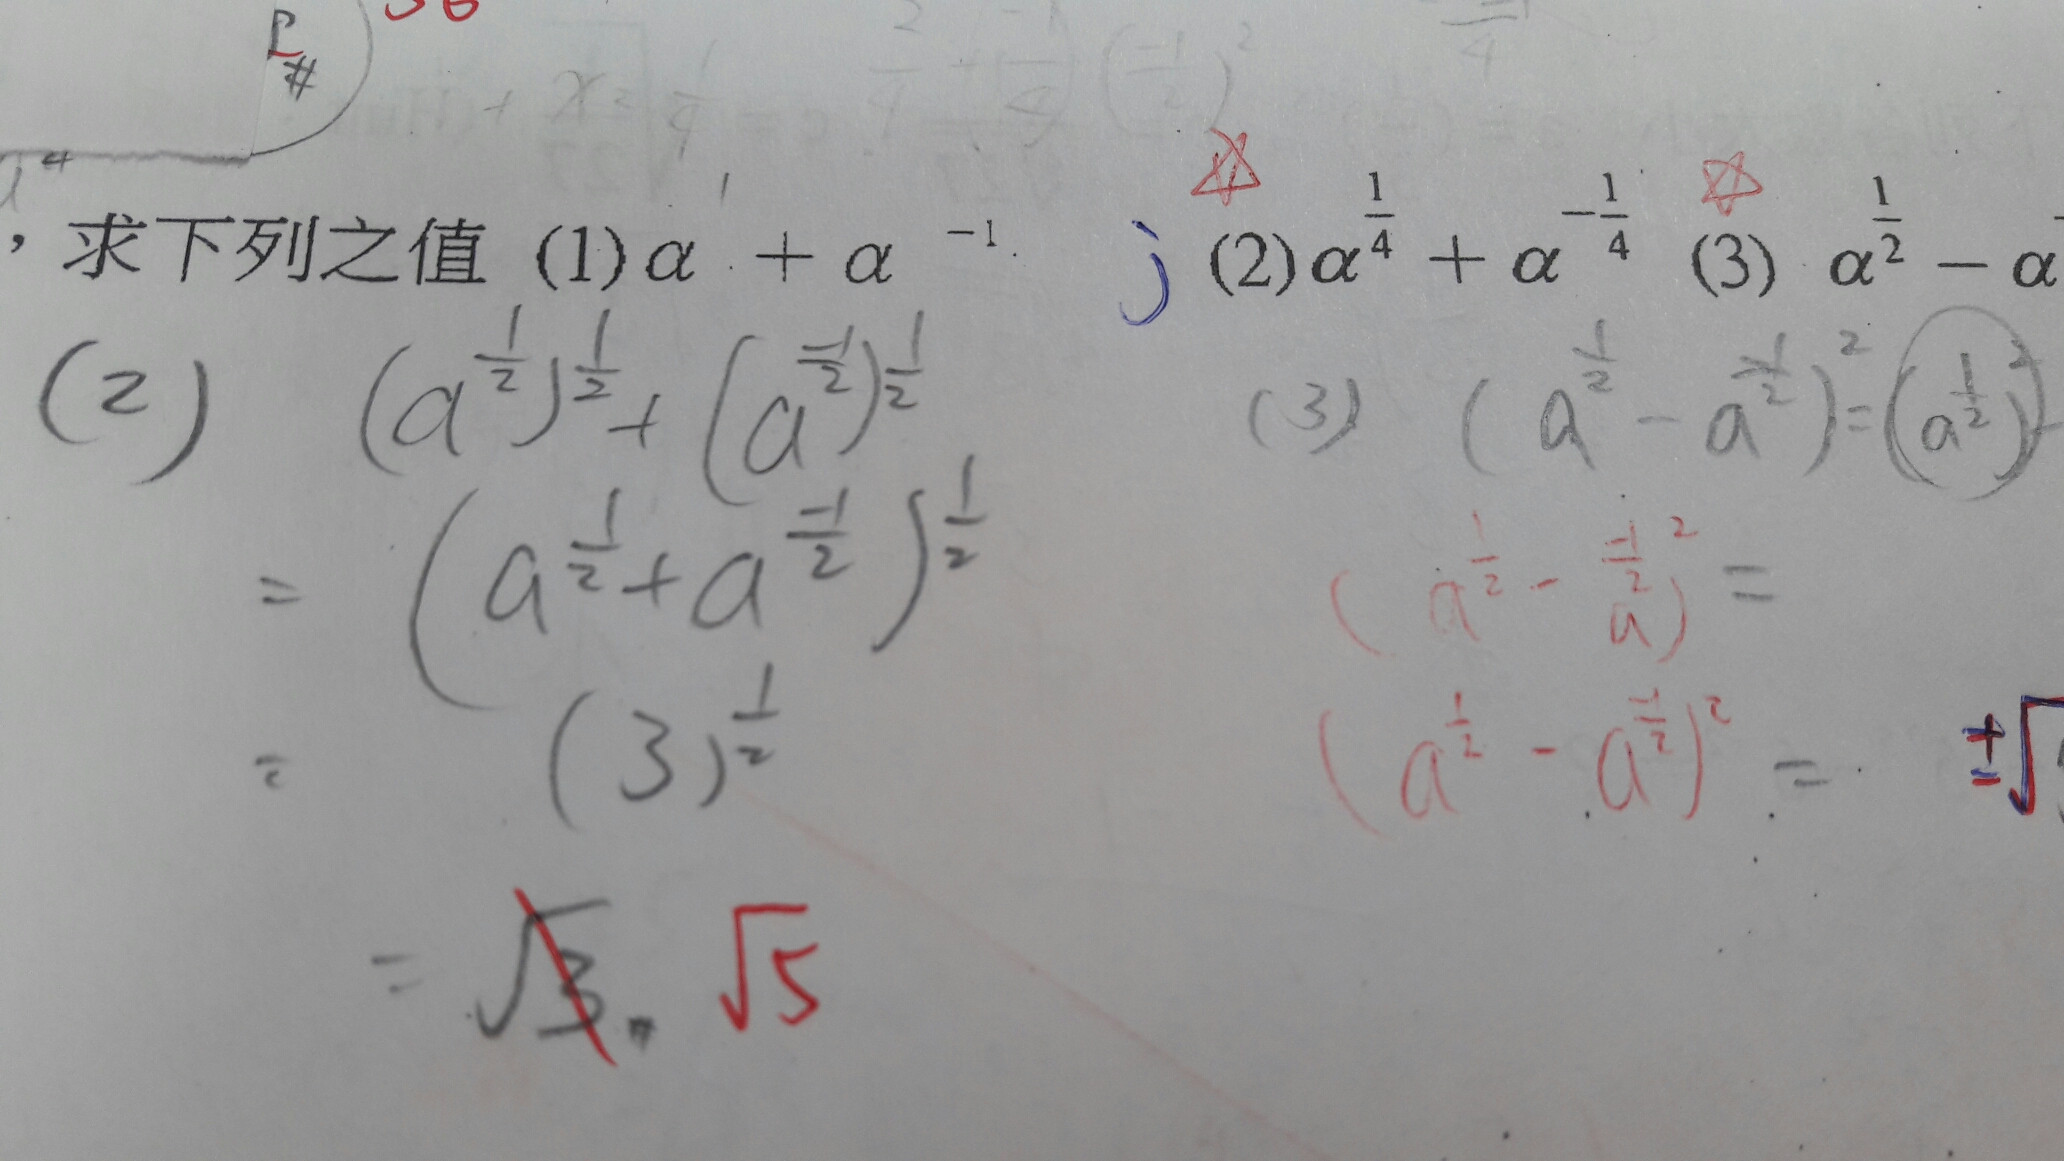 36
P
#
4
，求下列之值 (1) α + α^{-1} ; (2) α^{1/4} + α^{-1/4} (3) α^{1/2} - α
(2) (a^{1/2})^{1/2} + (a^{-1/2})^{1/2}
= (a^{1/2} + a^{-1/2})^{1/2}
= (3)^{1/2}
= √3 √5
(3) (a^{1/2} - a^{-1/2})^2 = (a^{1/2})^2 -
(a^{1/2} - a^{-1/2})^2 =
(a^{1/2} - a^{-1/2})^2 = ±√